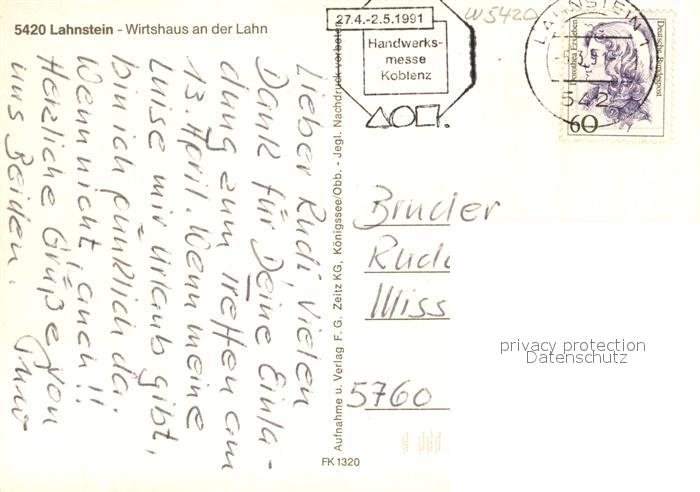 5420 Lahnstein - Wirtshaus an der Lahn
Lieber Rudi Vielen
Dank für Deine Einla-
dung zum Treffen am
13. April. Wenn meine
Luise mir Urlaub gibt,
bin ich pünklich da.
Wenn nicht, auch!!
Herzliche Grüße von
uns Beiden.
Aufnahme u. Verlag F. G. Zeitz KG, Königssee/Obb. - Jegl. Nachdruck verboten
FK 1320
27.4.-2.5.1991
Handwerks-
messe
Koblenz
W5420
LAHNSTEIN 1
542
Dorothea Erxleben
Deutsche Bundespost
60
Bruder
Rudi
Miss
5760
privacy protection
Datenschutz